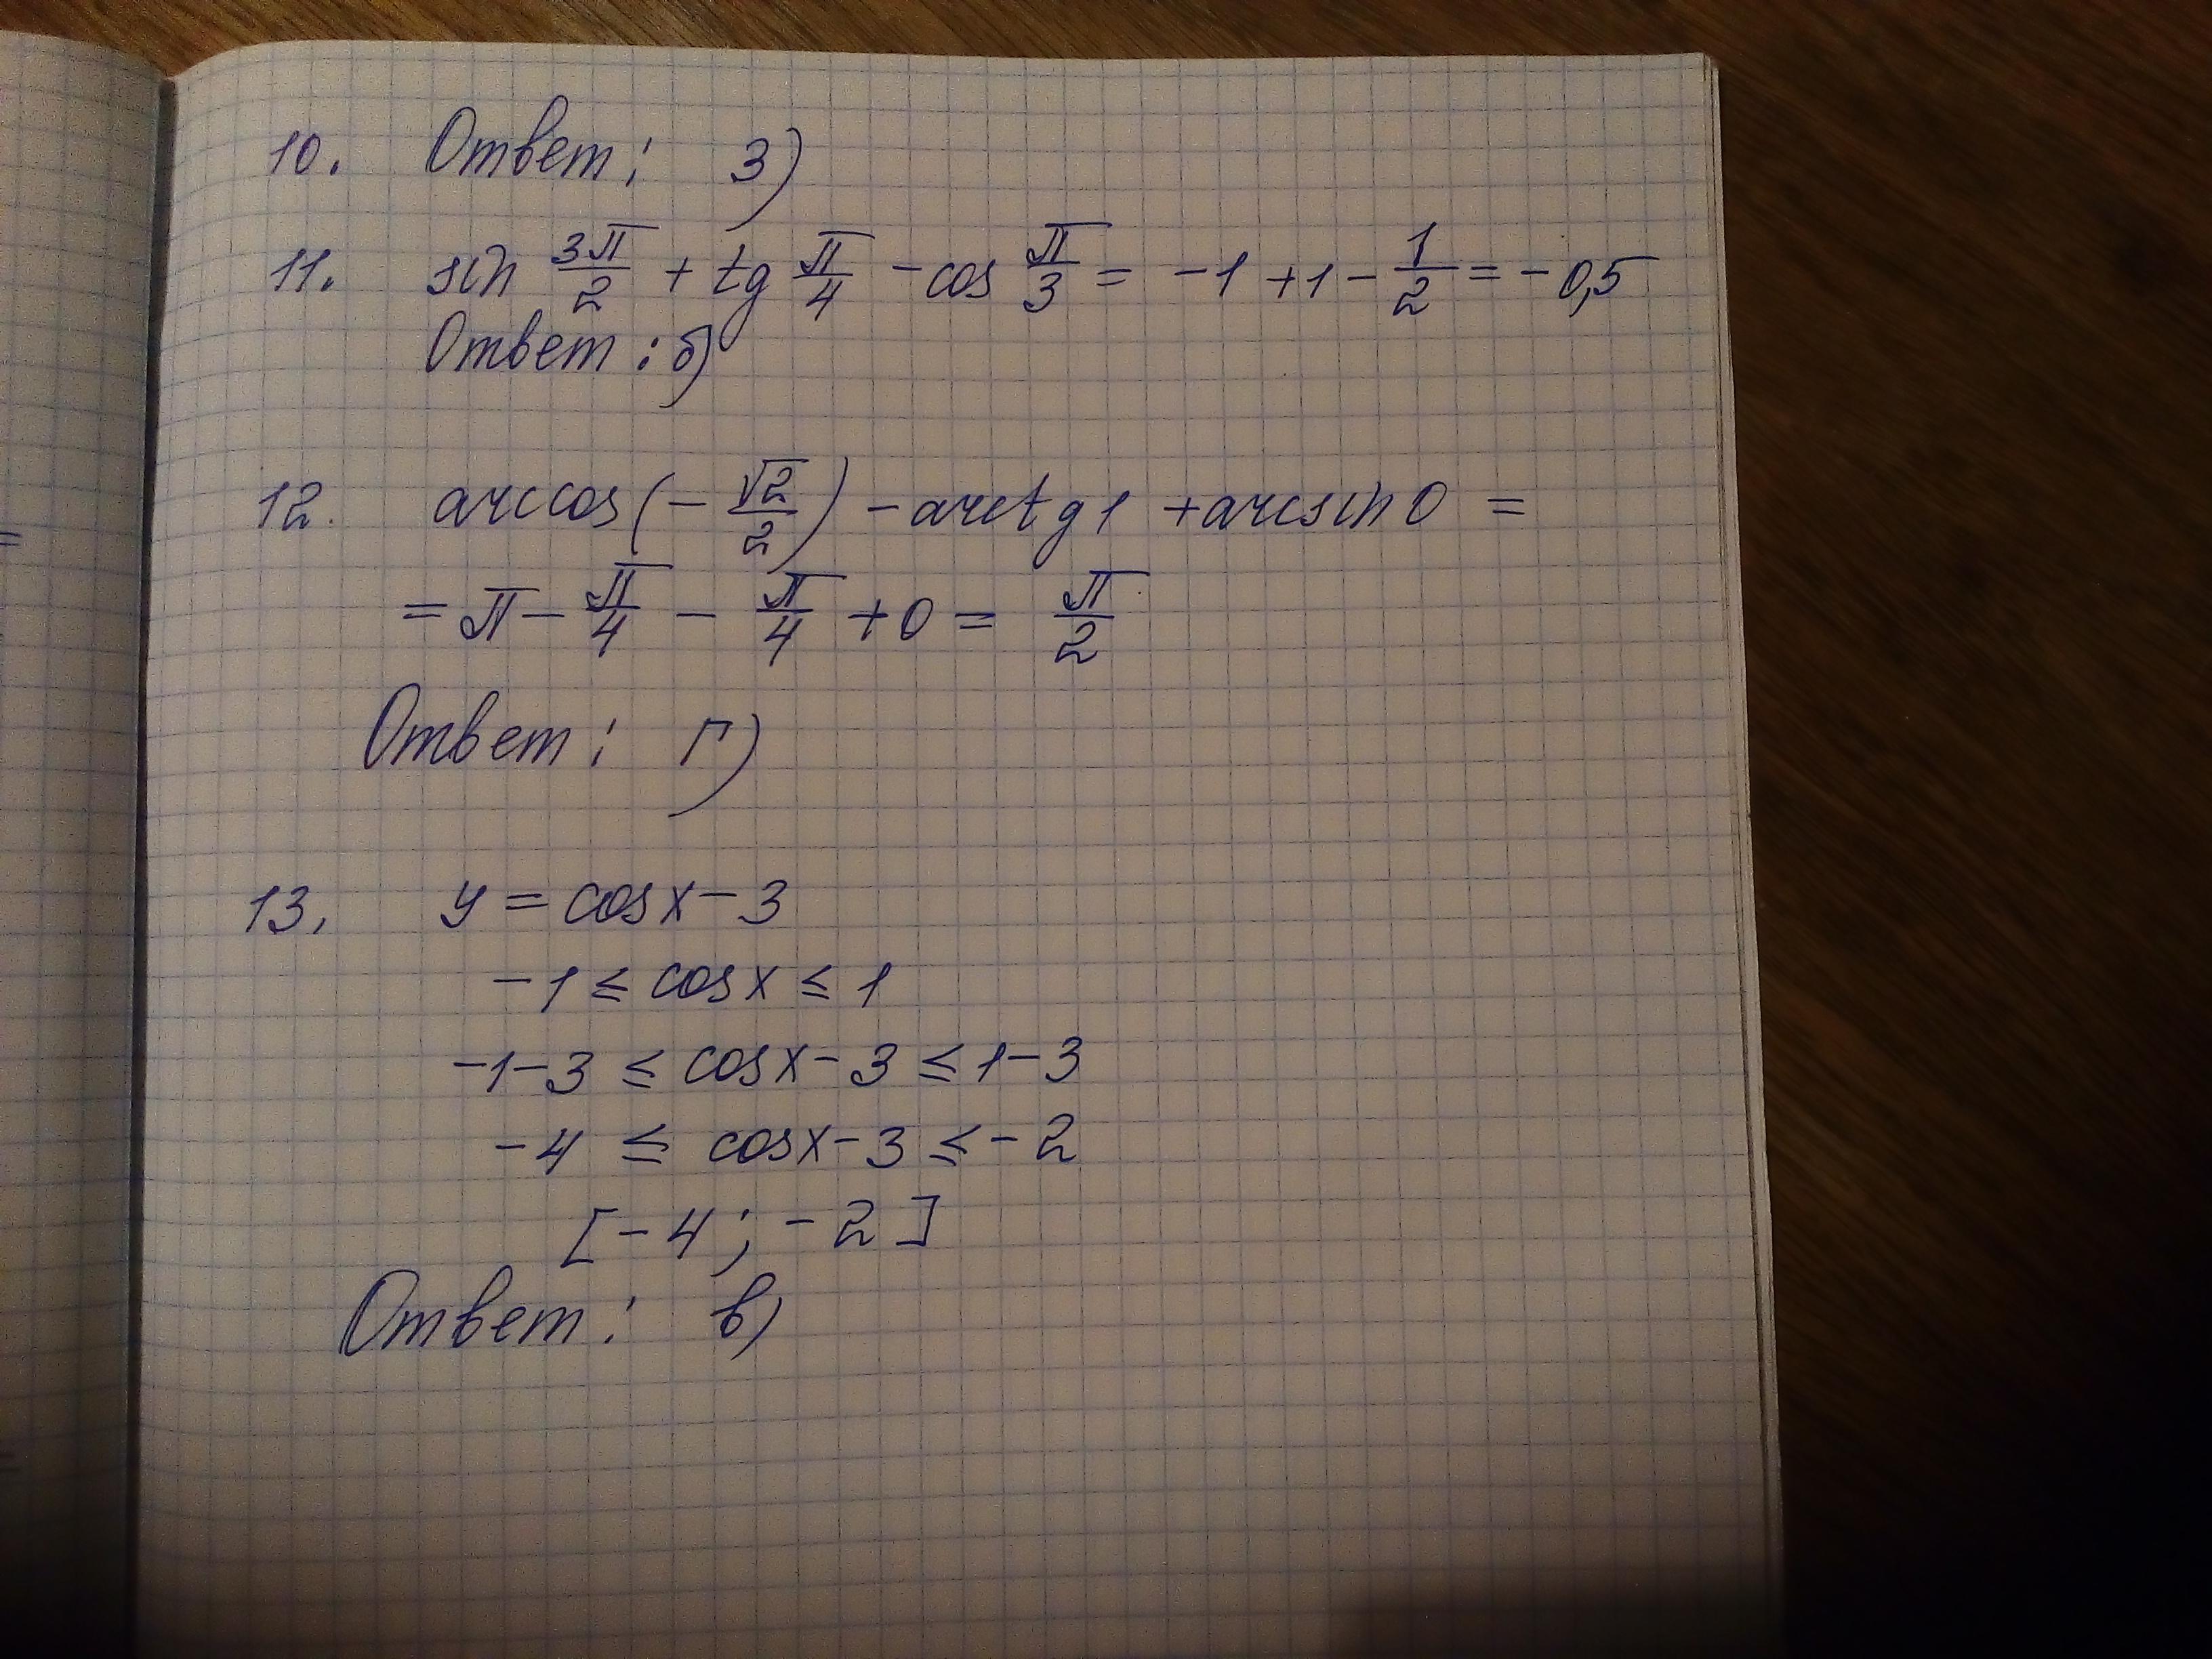 10. Ответ: 3)
11. sin 3π/2 + tg π/4 - cos π/3 = -1 +1 - 1/2 = -0,5
Ответ: б)
12. arccos(-√2/2) - arctg 1 + arcsin 0 =
= π - π/4 - π/4 + 0 = π/2
Ответ: г)
13. y = cosx - 3
-1 ≤ cosx ≤ 1
-1-3 ≤ cosx - 3 ≤ 1-3
-4 ≤ cosx - 3 ≤ -2
[-4; -2]
Ответ: в)